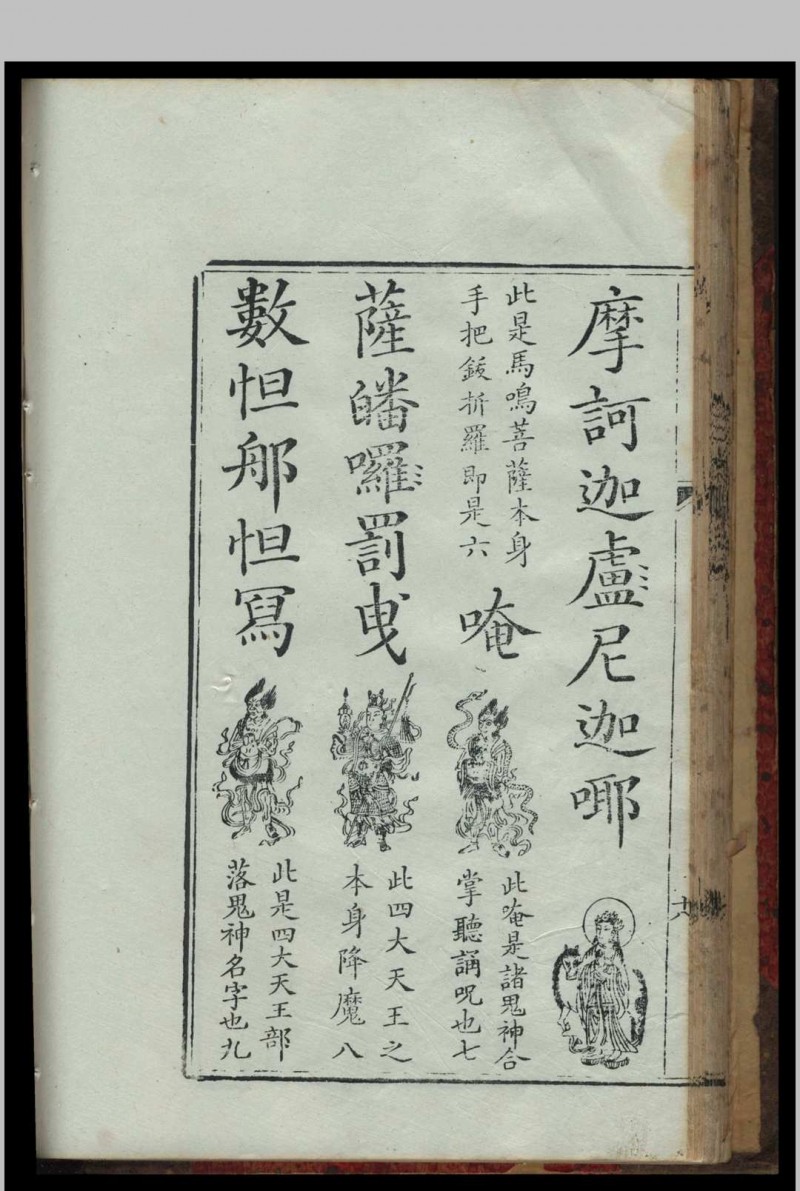 摩訶迦盧尼迦唧
此是馬鳴菩薩本身
手把鈸折羅即是六
唵
此唵是諸鬼神合
掌聽誦呪也七
薩皤囉罰曳
此四大天王之
本身降魔八
數怛那怛寫
此是四大天王部
落鬼神名字也九